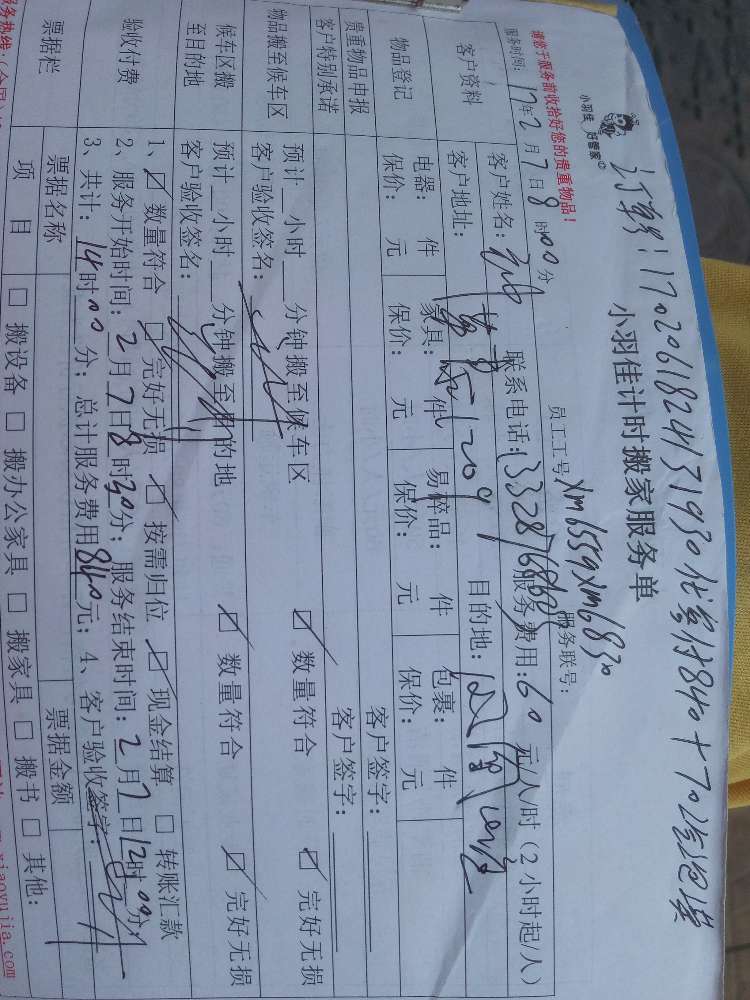 订单号:1702061824131930 优惠付840+70
小羽佳 好管家
小羽佳计时搬家服务单
请您于服务前收拾好您的贵重物品!
员工工号 xm6559 xm6830 服务联号:
服务时间: 17年2月7日8时00分
客户资料
客户姓名: 联系电话: 13328768602 服务费用: 60 元/人/时(2小时起/人)
客户地址: 目的地:
物品登记
电器: 件 家具: 件 易碎品: 件 包裹: 件
保价: 元 保价: 元 保价: 元 保价: 元
贵重物品申报 客户签字:
客户特别承诺 客户签字:
物品搬至候车区
预计__小时__分钟搬至候车区 ☑ 数量符合 ☑ 完好无损
客户验收签名:
候车区搬至目的地
预计__小时__分钟搬至目的地 ☑ 数量符合 ☑ 完好无损
客户验收签名:
验收付费
1、☑ 数量符合 ☑ 完好无损 ☑ 按需归位 ☑ 现金结算 ☐ 转账汇款
2、服务开始时间: 2月7日8时30分; 服务结束时间: 2月7日12时00分;
3、共计: 14时00分; 总计服务费用840元; 4、客户验收签字:
票据栏
票据名称 票据金额
项目 ☐ 搬设备 ☐ 搬办公家具 ☐ 搬家具 ☐ 搬书 ☐ 其他:
xiaoyujia.com